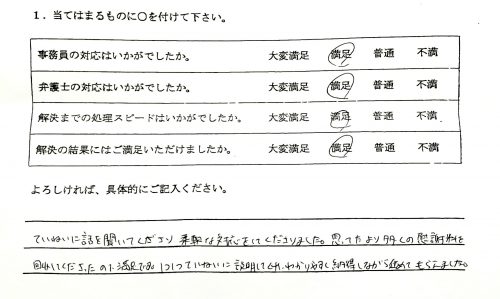 1．当てはまるものに○を付けて下さい。
事務員の対応はいかがでしたか。 大変満足 満足 普通 不満
弁護士の対応はいかがでしたか。 大変満足 満足 普通 不満
解決までの処理スピードはいかがでしたか。 大変満足 満足 普通 不満
解決の結果にはご満足いただけましたか。 大変満足 満足 普通 不満
よろしければ、具体的にご記入ください。
ていねいに話を聞いてくださり 柔軟な対応をしてくださりました。思ってたより多くの慰謝料を
回収してくださったので満足です。1つ1つていねいに説明してくれ、わかりやすく納得しながら進めてもらえました。